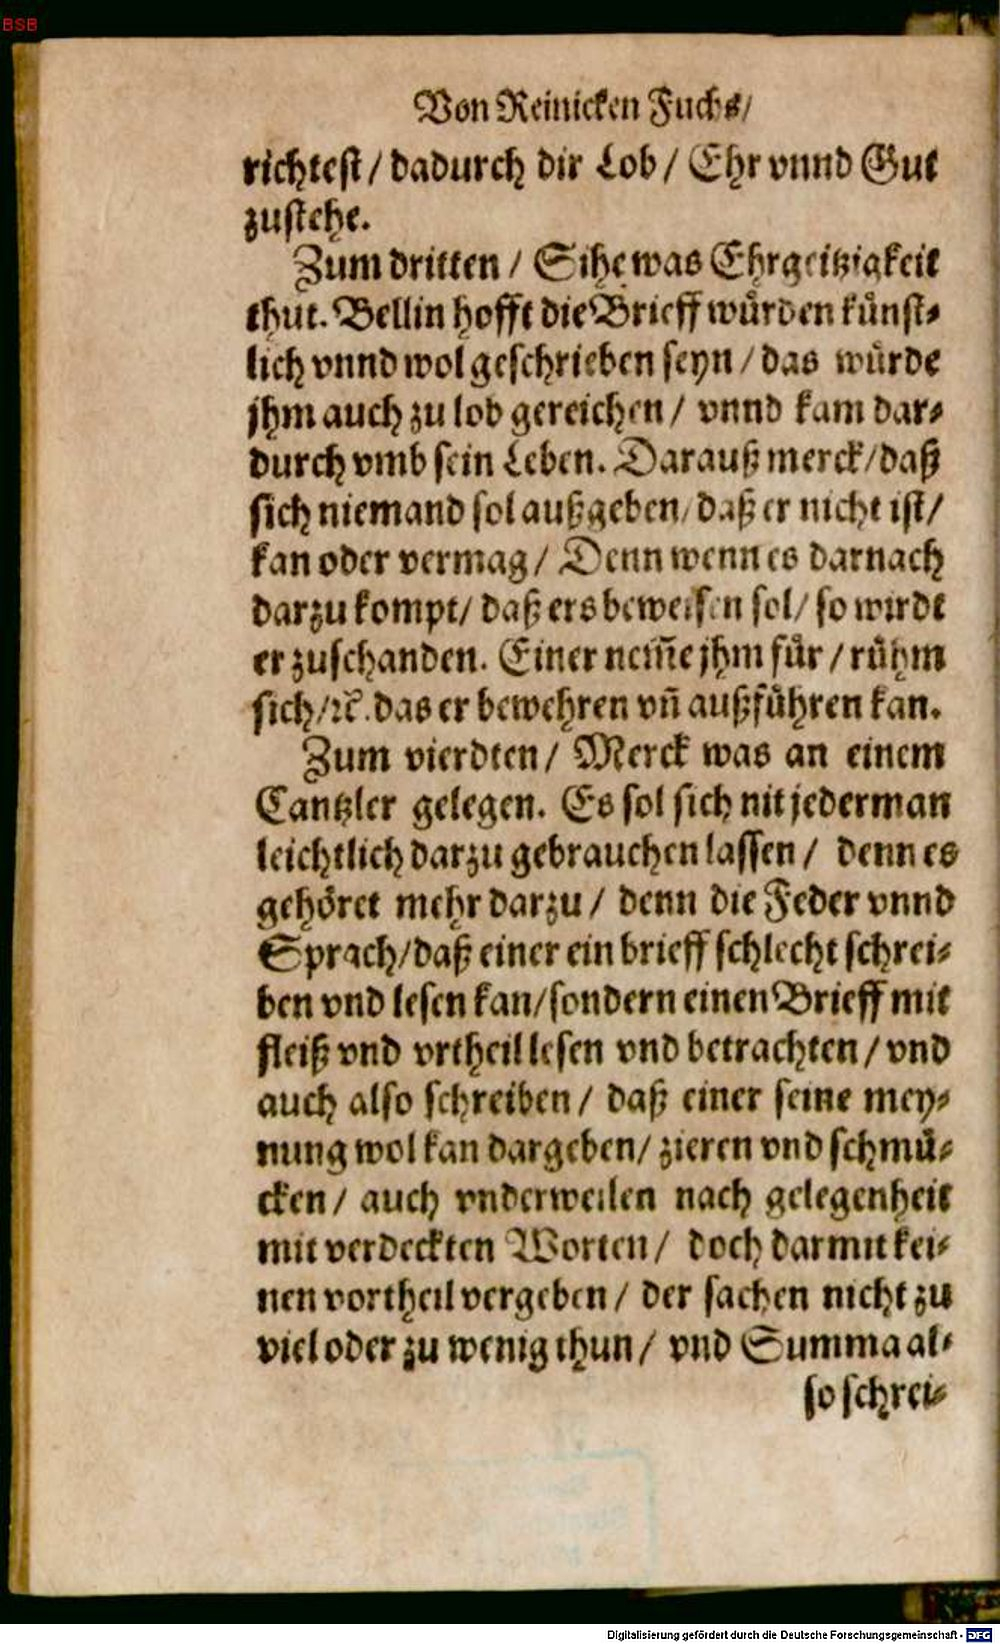 BSB
Von Reinicken Fuchs/
richtest / dadurch dir Lob / Ehr vnnd Gut
zustehe.
Zum dritten / Sihe was Ehrgeitzigkeit
thut. Bellin hofft die Brieff wuͤrden kuͤnst⸗
lich vnnd wol geschrieben seyn / das wuͤrde
jhm auch zu lob gereichen / vnnd kam dar⸗
durch vmb sein Leben. Darauß merck / daß
sich niemand sol außgeben / daß er nicht ist /
kan oder vermag / Denn wenn es darnach
darzu kompt / daß ers beweisen sol / so wirdt
er zuschanden. Einer nem̃e jhm fuͤr / ruͤhm
sich / ꝛc̃. das er bewehren vñ außfuͤhren kan.
Zum vierdten / Merck was an einem
Cantzler gelegen. Es sol sich nit jederman
leichtlich darzu gebrauchen lassen / denn es
gehoͤret mehr darzu / denn die Feder vnnd
Sprach / daß einer ein brieff schlecht schrei⸗
ben vnd lesen kan / sondern einen Brieff mit
fleiß vnd vrtheil lesen vnd betrachten / vnd
auch also schreiben / daß einer seine mey⸗
nung wol kan dargeben / zieren vnd schmuͤ⸗
cken / auch vnderweilen nach gelegenheit
mit verdeckten Worten / doch darmit kei⸗
nen vortheil vergeben / der sachen nicht zu
viel oder zu wenig thun / vnd Summa al⸗
so schrei⸗
Digitalisierung gefördert durch die Deutsche Forschungsgemeinschaft - DFG